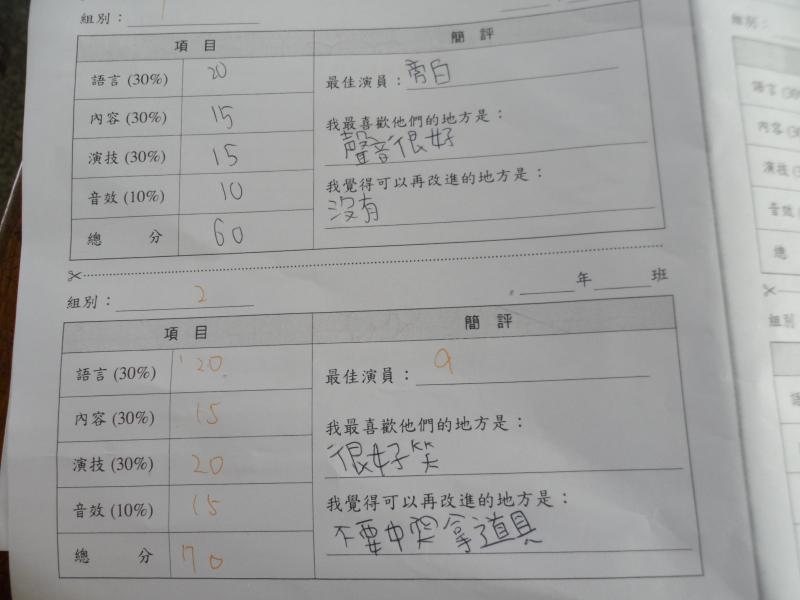 組別：1
項目 簡評
語言 (30%) 20 最佳演員：旁白
內容 (30%) 15 我最喜歡他們的地方是：
聲音很好
演技 (30%) 15
音效 (10%) 10 我覺得可以再改進的地方是：
沒有
總分 60
組別：2 年 班
項目 簡評
語言 (30%) 20 最佳演員：9
內容 (30%) 15 我最喜歡他們的地方是：
很好笑
演技 (30%) 20
音效 (10%) 15 我覺得可以再改進的地方是：
不要中突拿道具
總分 70
組別：
語言
內容
演技
音效
總
組別